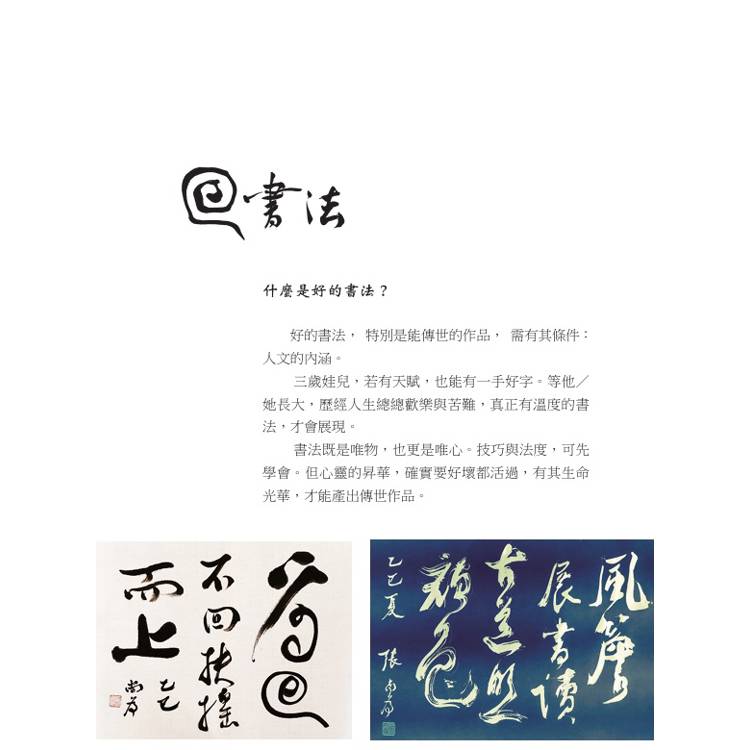 書法
什麼是好的書法？
好的書法， 特別是能傳世的作品， 需有其條件：
人文的內涵。
三歲娃兒，若有天賦，也能有一手好字。等他／
她長大，歷經人生總總歡樂與苦難，真正有溫度的書
法，才會展現。
書法既是唯物，也更是唯心。技巧與法度，可先
學會。但心靈的昇華，確實要好壞都活過，有其生命
光華，才能產出傳世作品。
不回扶搖
而上
乙巳
風簷
展書讀
古道照
顏色
乙巳夏 張